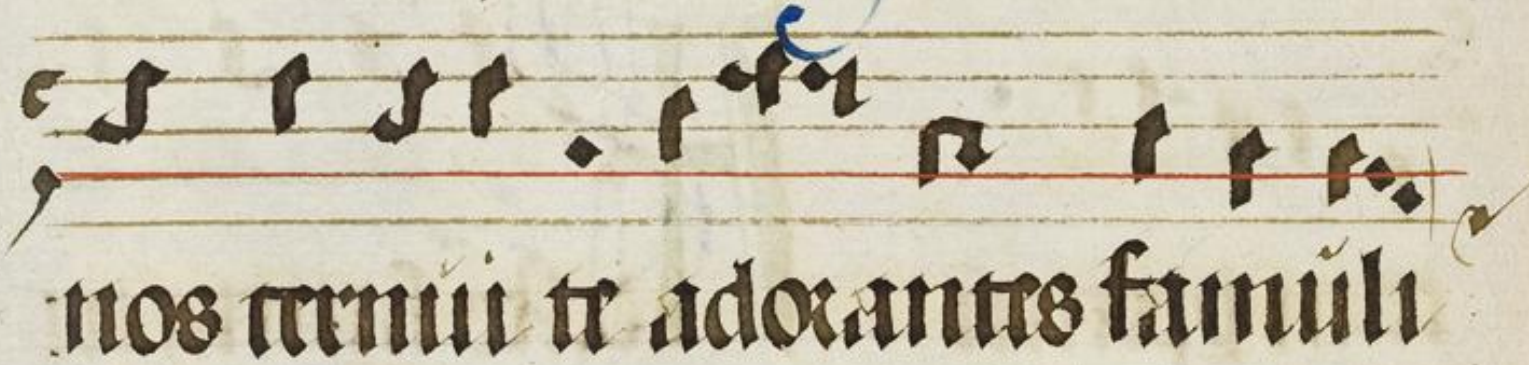 nos cernui te adorantes famuli